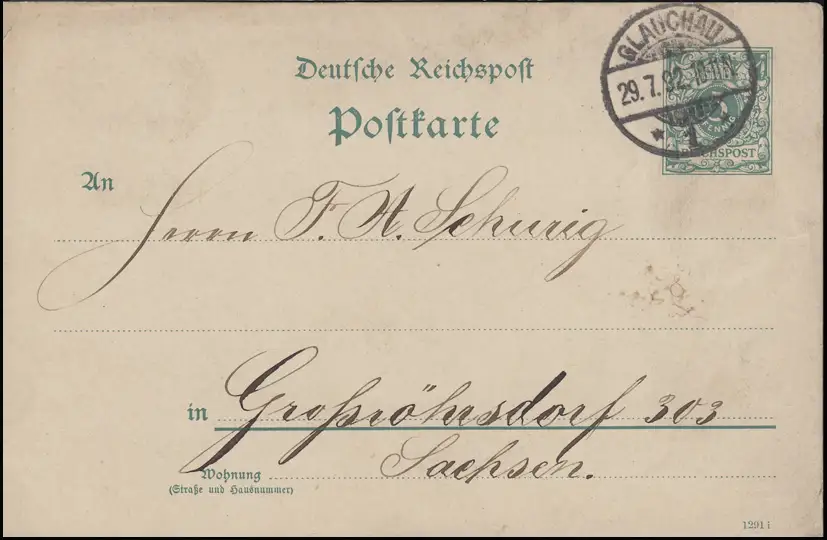 Deutsche Reichspost
Postkarte
GLAUCHAU
29.7.92.
1
PFENNIG
REICHSPOST
An
Herrn F. A. Schurig
in Großröhrsdorf 303
Sachsen.
Wohnung
(Straße und Hausnummer)
1291 i